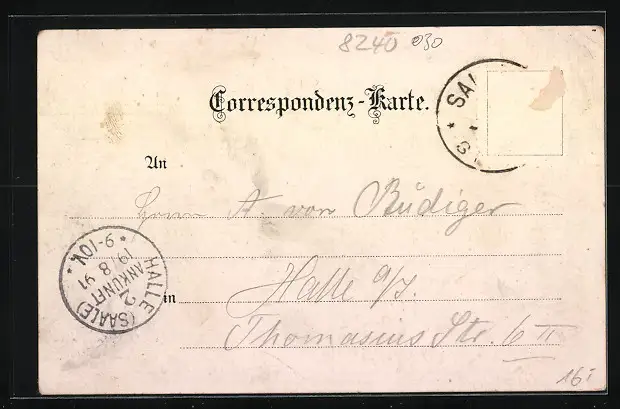 8240 030
Correspondenz-Karte.
SAL
An
Herrn A. von Rüdiger
* 9-10V. *
19 8 91
ANKUNFT
HALLE (SAALE)
2
in Halle a/S.
Thomasius Str. 6 II
16.